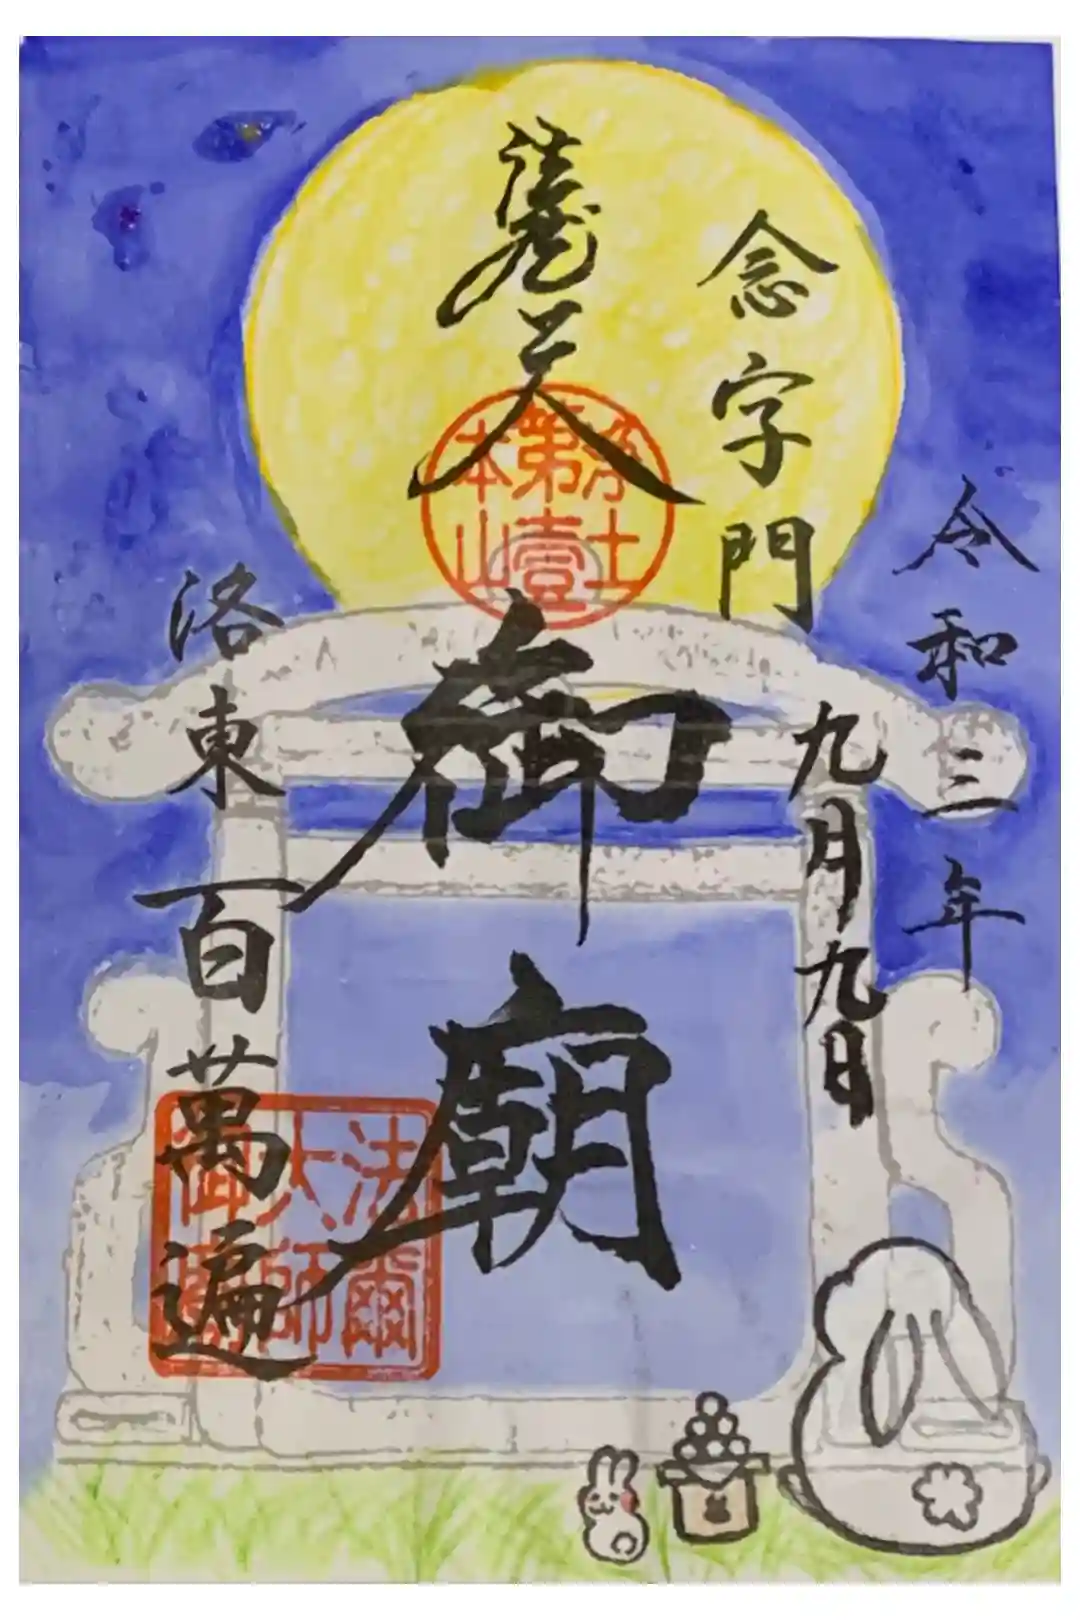 令和三年
九月九日
念字門
浄土
第壹
本山
御廟
洛東百萬遍
法爾
大師
御